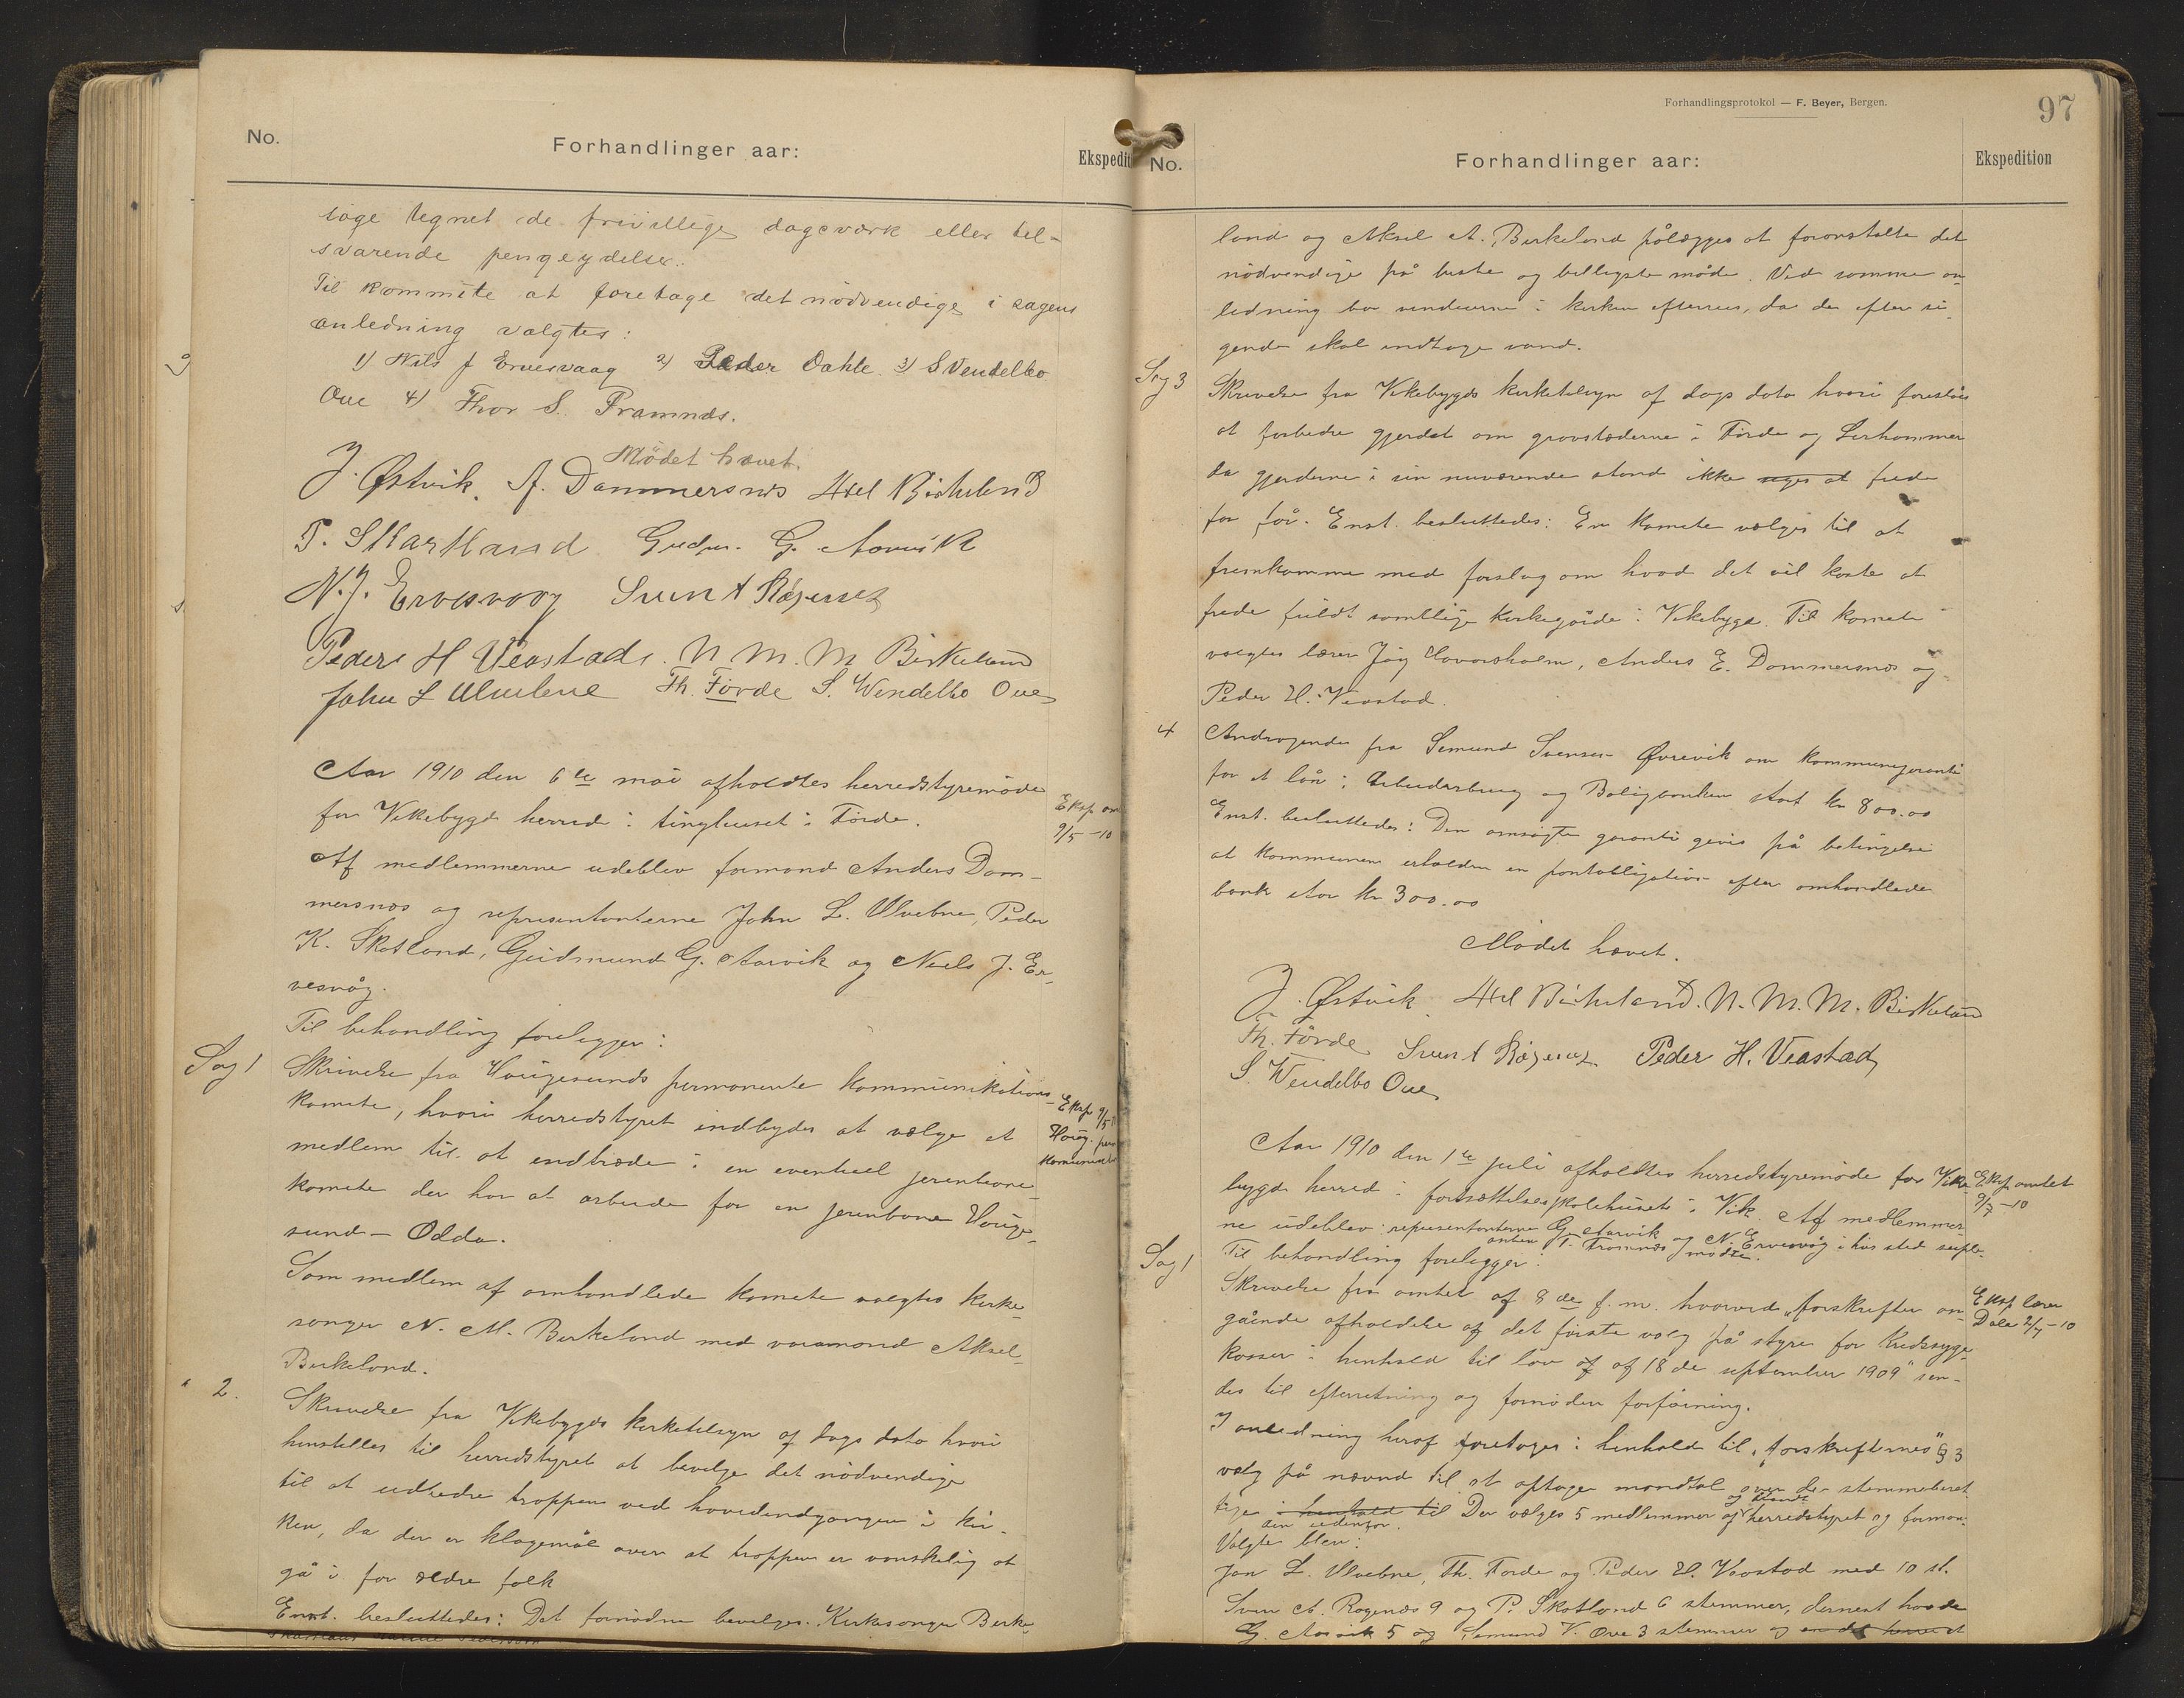 No.
Forhandlinger aar:
Ekspedit
tage tegnet de frivillige dagsværk eller til-
svarende pengeydelse.
Til kommite at foretage det nödvendige i sagens
anledning valgtes:
1) Nils J Ervesvaag 2) Peder Dahle 3) S Vendelbo
Oue 4) Thor S. Framnæs.
Mödet hævet.
J. Østvik. A. Dammersnæs Axel Birkeland
P. Skartland Gudm. G. Aarvik
N. J. Ervesvaag Sven A Ragenæs
Peder H Veastad. N. M. M Birkeland
John L Ulvebne Th. Förde S. Wendelbo Oue
Aar 1910 den 6te mai afholdtes herredstyremöde
for Vikebygd herred i tinghuset i Förde.
Eksp am
9/5-10
Af medlemmerne udeblev formand Anders Dam-
mersnæs og representanterne John L. Ulvebne, Peder
K. Skotland, Gudmund G. Aarvik og Neels J. Er-
vesvåg.
Til behandling foreligger:
Sag 1
Skrivelse fra Haugesunds permanente kommunikations-
komite, hvori herredstyret indbydes at vælge et
medlem til at indtræde i en eventuel jernbane-
komite der har at arbeide for en jernbane Hauge-
sund - Odda.
Eksp 9/5
Haug. per
Komunicat
Som medlem af omhandlede komite valgtes kirke-
sanger N. M. Birkeland med varamand Aksel
Birkeland.
" 2.
Skrivelse fra Vikebygds kirketilsyn af dags dato hvori
henstilles til herredstyret at bevilge det nödvendige
til at udbedre trappen ved hovedindgangen i kir-
ken, da der er klagemål over at trappen er vanskelig at
gå i for ældre folk
Enst. besluttedes: Det fornödne bevilges. Kirkesanger Birke-
Forhandlingsprotokol — F. Beyer, Bergen.
97
No.
Forhandlinger aar:
Ekspedition
land og Aksel A. Birkeland pålægges at foranstalte det
nödvendige på beste og billigste måde. Ved samme an-
ledning bör vinduerne i kirken efterses, da de efter si-
gende skal indtage vand.
Sag 3
Skrivelse fra Vikebygds kirketilsyn af dags dato hvori foreslåes
at forbedre gjerdet om gravstæderne i Förde og Lerhammer
da gjerderne i sin nuværende stand ikke siges at frede
for får. Enst. besluttedes: En komite vælges til at
fremkomme med forslag om hvad det vil koste at
frede fuldt samtlige kirkegårde i Vikebygd. Til komite
valgtes lærer Jøg Havarsholm, Anders E. Dommersnæs og
Peder H. Veastad.
4
Andragende fra Semund Svensen Øvrevik om kommunegaranti
for et lån i Arbeiderbrug og Boligbanken stort kr 800.00
Enst. besluttedes: Den ansögte garanti givis på betingelse
at kommunen erholder en pantobligation efter omhandlede
bank stor kr 300.00
Mödet hævet.
J. Østvik. Axel Birkeland. N. M. M. Birkeland
Th. Förde Sven A Ragenæs Peder H. Veastad
S. Wendelbo Oue
Aar 1910 den 1te juli afholdtes herredstyremöde for Vike-
bygd herred i fortsættelsesskolehuset i Vik. Af medlemmer-
ne udeblev: representanterne G. Aarvik og N. Ervesvåg i hvis sted suple-
anten T. Framnæs mödte.
Eksp amtet
9/7-10
Til behandling foreligger:
Sag 1
Skrivelse fra amtet af 8de f. m. hvorved "forskrifter an-
gående afholdelse af det förste valg på styre for Kredssyge-
kasser i henhold til lov af af 18de september 1909" sen-
des til efterretning og fornöden forföining.
Eksp lærer
Dale 2/7-10
I anledning heraf foretages i henhold til "forskrifternes" § 3
valg på nævnd til at optage mandtal over de stemmeberet-
tige i henhold til Der vælges 5 medlemmer af herredstyret og forman-
Valgte blev:
Jon L. Ulvebne, Th. Förde og Peder H. Veastad med 10 st.
Sven A. Ragenæs 9 og P. Skotland 6 stemmer, dernest havde
G. Aarvik 5 og Semund V. Oue 3 stemmer og